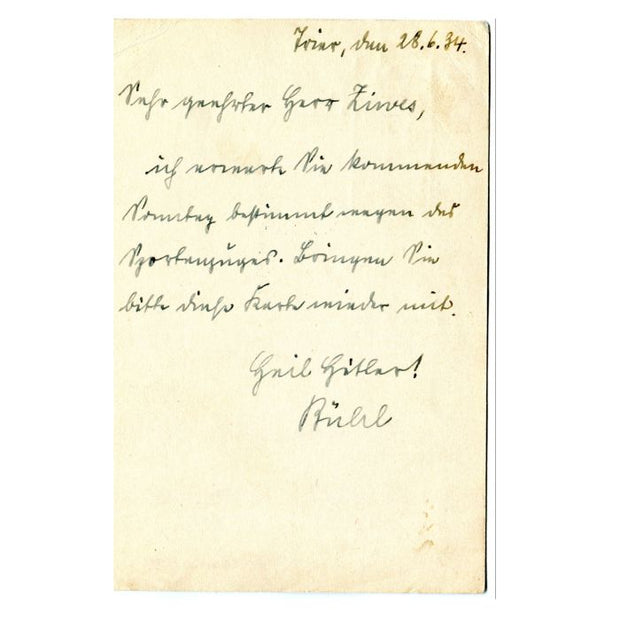 Trier, den 28.6.34.
Sehr geehrter Herr Ziwes,
ich erwarte Sie kommenden
Sonntag bestimmt wegen des
Sportanzuges. Bringen Sie
bitte diese Karte wieder mit.
Heil Hitler!
Rühl